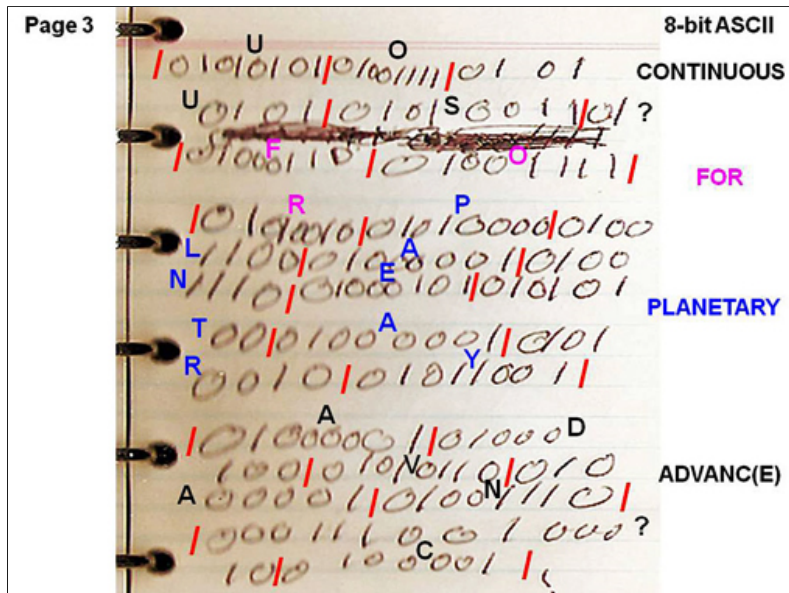 Page 3 8-bit ASCII
U O
/ 01010101 / 01001111 / 01 01 CONTINUOUS
U S
0101 / 01010011 / 01 ?
F O
/ 01000110 / 01001111 / FOR
R P
/ 01010010 / 01010000 / 0100
L A
1100 / 01000001 / 0100
N E
1110 / 01000101 / 010101 PLANETARY
T A
00 / 01000001 / 0101
R Y
0010 / 01011001 /
A D
/ 01000001 / 01000
V
100 / 01010110 / 010 ADVANC(E)
A N
00001 / 01001110 /
/ 000111001000 ?
C
10 / 0 100001 /